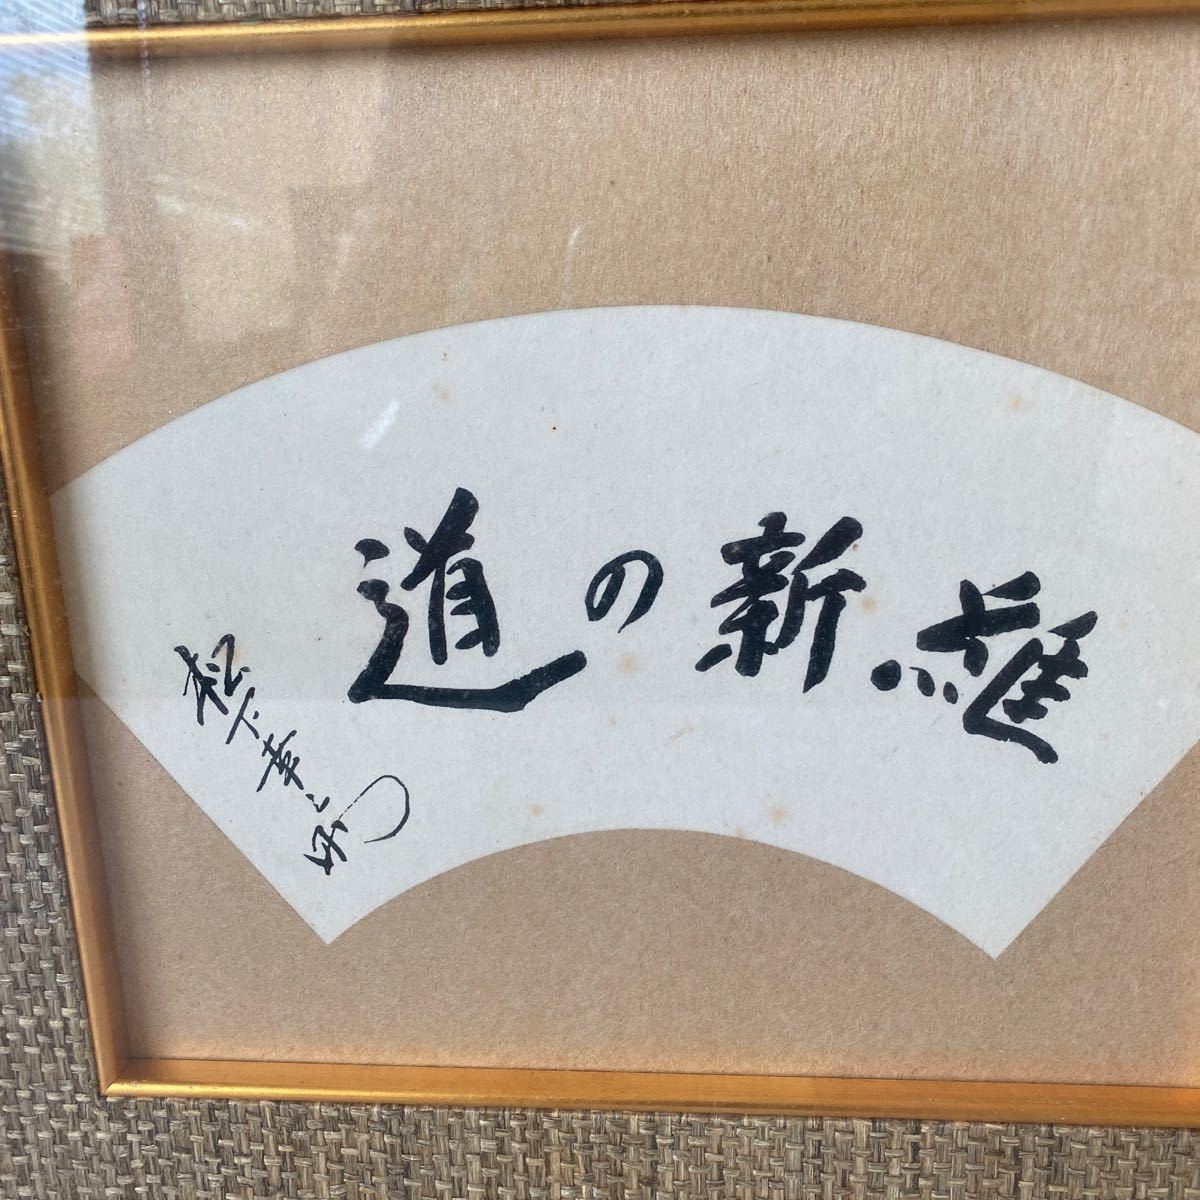 維新の道
松下幸之助